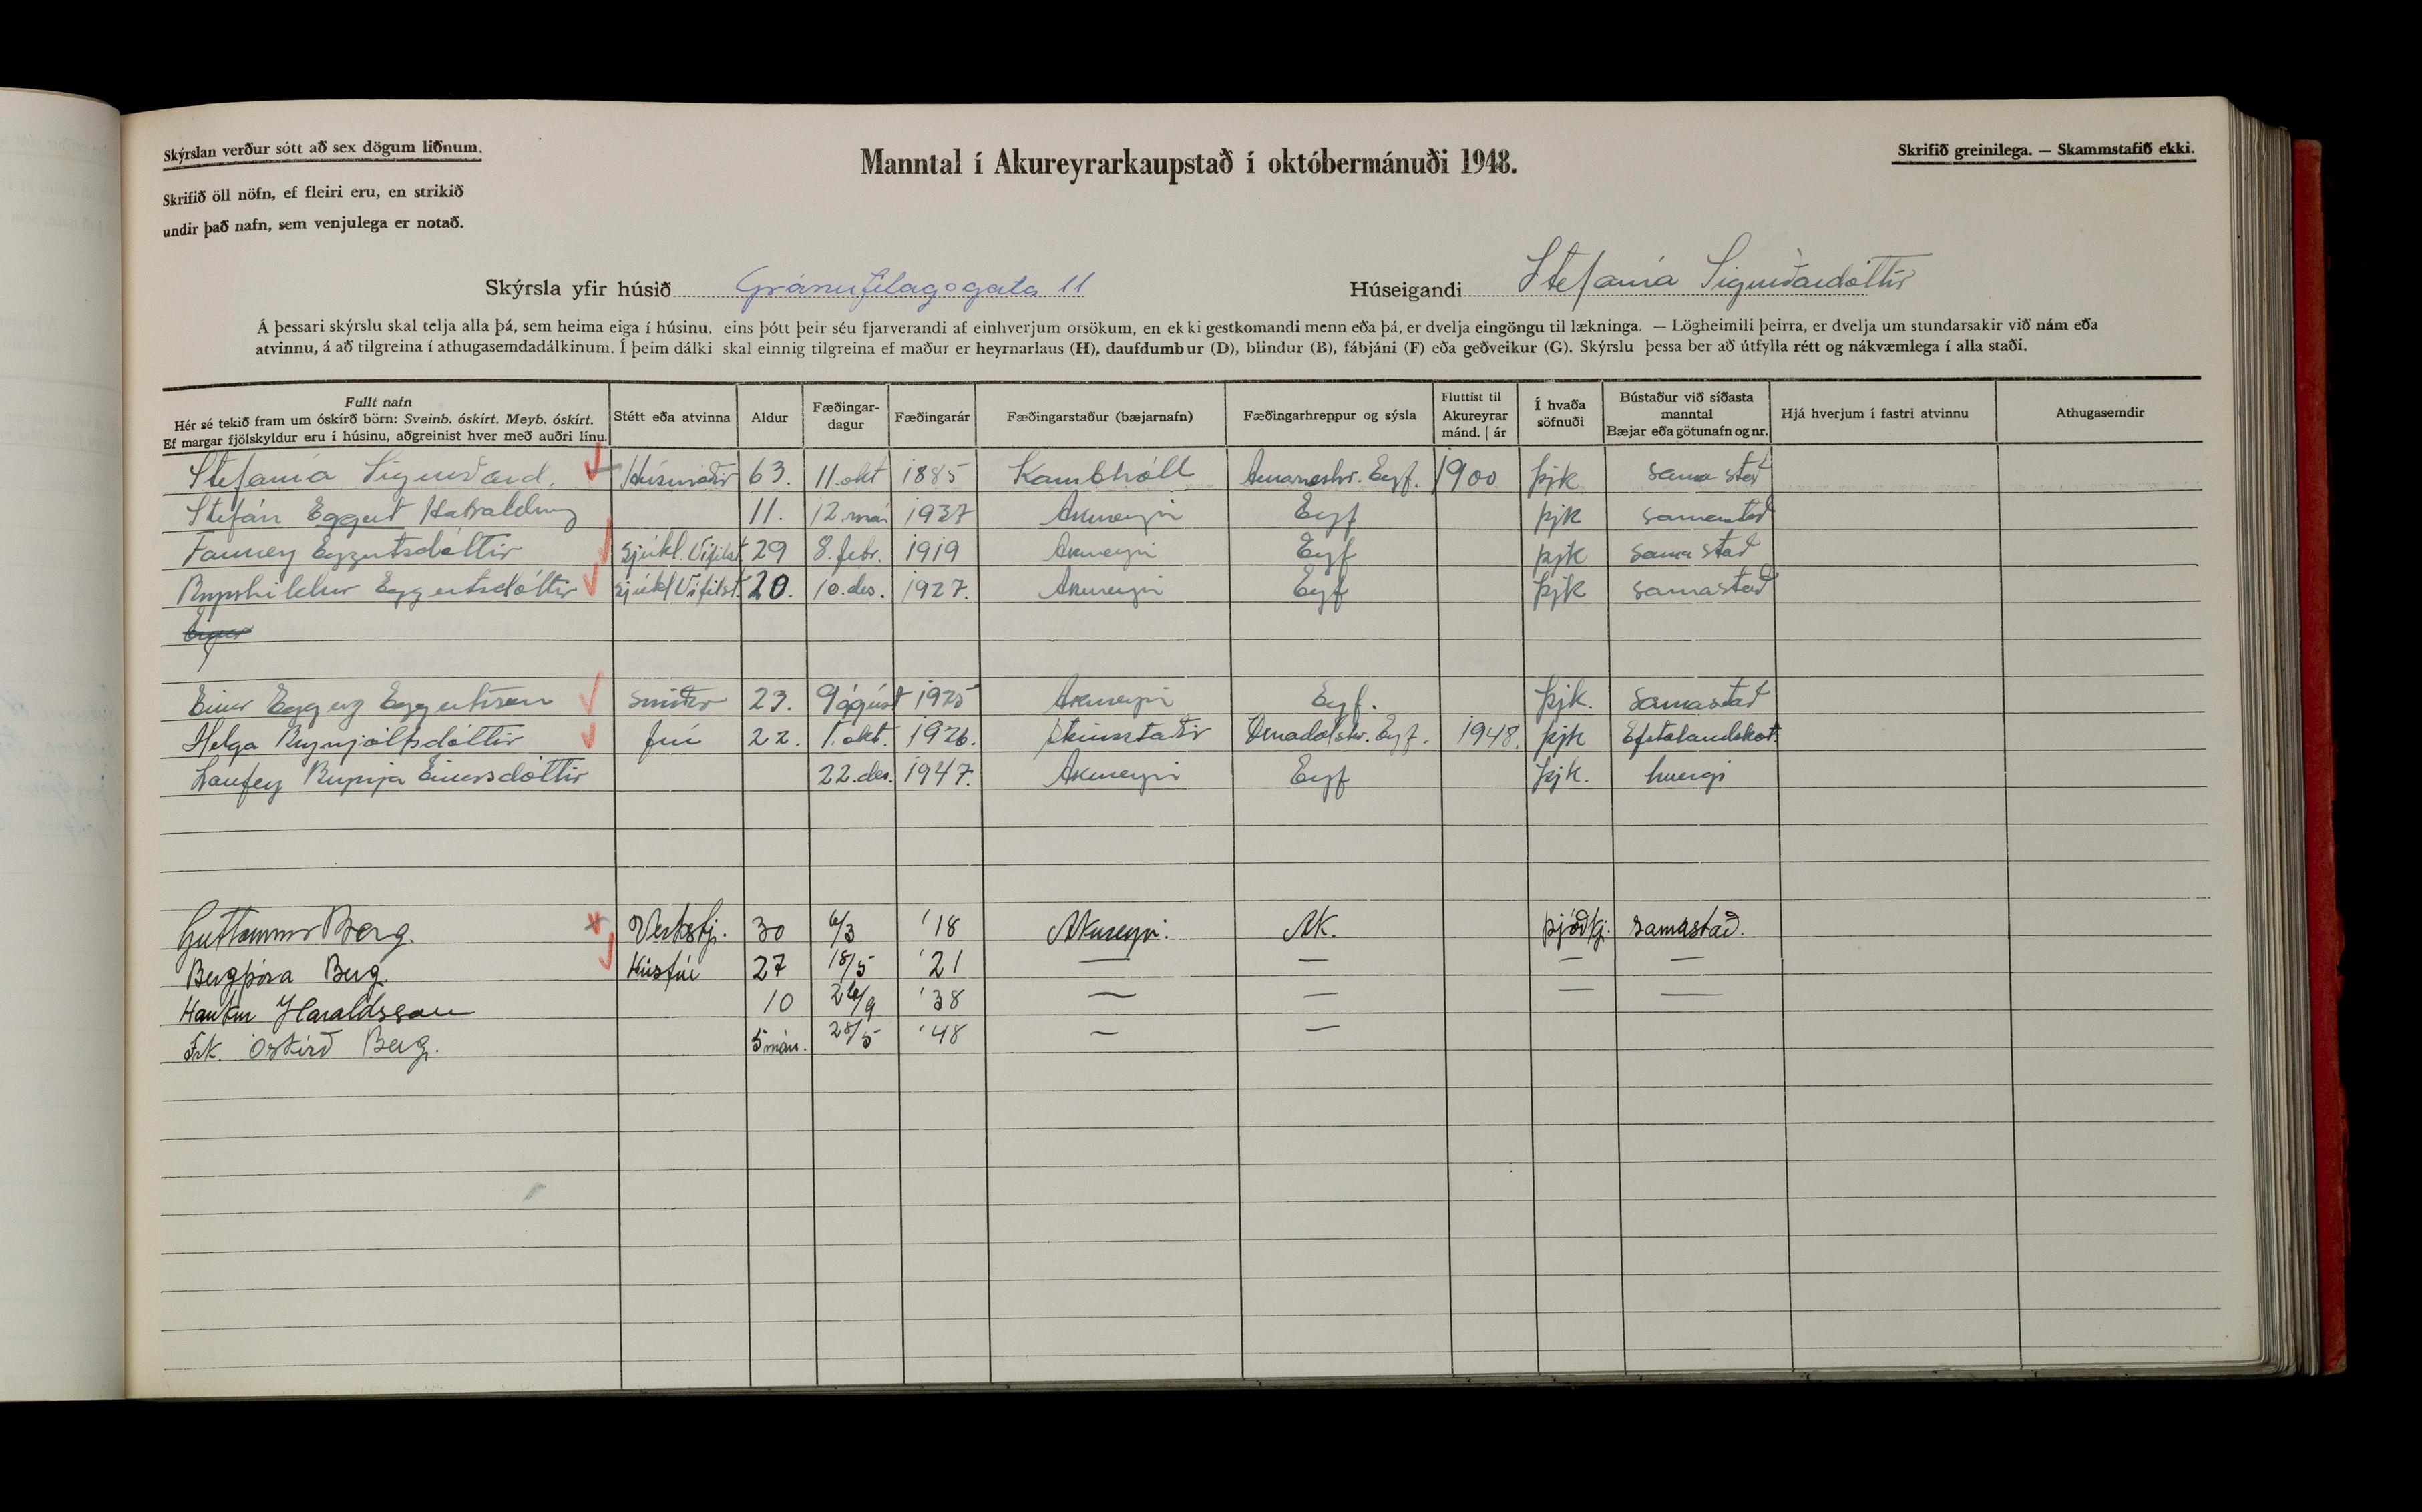 Skýrslan verður sótt að sex dögum liðnum.
Skrifið öll nöfn, ef fleiri eru, en strikið
undir það nafn, sem venjulega er notað.
Manntal í Akureyrarkaupstað í októbermánuði 1948.
Skrifið greinilega. — Skammstafið ekki.
Skýrsla yfir húsið Gránufélagsgata 11 Húseigandi Stefanía Sigurðardóttir
Á þessari skýrslu skal telja alla þá, sem heima eiga í húsinu, eins þótt þeir séu fjarverandi af einhverjum orsökum, en ekki gestkomandi menn eða þá, er dvelja eingöngu til lækninga. — Lögheimili þeirra, er dvelja um stundarsakir við nám eða
atvinnu, á að tilgreina í athugasemdadálkinum. Í þeim dálki skal einnig tilgreina ef maður er heyrnarlaus (H), daufdumbur (D), blindur (B), fábjáni (F) eða geðveikur (G). Skýrslu þessa ber að útfylla rétt og nákvæmlega í alla staði.
Fullt nafn Hér sé tekið fram um óskírð börn: Sveinb. óskírt. Meyb. óskírt. Ef margar fjölskyldur eru í húsinu, aðgreinist hver með auðri línu. Stétt eða atvinna Aldur Fæðingar-dagur Fæðingarár Fæðingarstaður (bæjarnafn) Fæðingarhreppur og sýsla Fluttist til Akureyrar mánd. | ár Í hvaða söfnuði Bústaður við síðasta manntal Bæjar eða götunafn og nr. Hjá hverjum í fastri atvinnu Athugasemdir
Stefanía Sigurðard. Húsmóðir 63. 11. okt 1885 Kambhóll Arnarneshr. Eyf. 1900 þjk sama stað
Stefán Eggert 11. 12. maí 1937 Akureyri Eyf þjk samastað
Fanney Eggertsdóttir sjúkl. Vífilst. 29 8. febr. 1919 Akureyri Eyf þjk sama stað
Brynhildur Eggertsdóttir sjúkl Vífilst. 20. 10. des. 1927. Akureyri Eyf þjk samastað
Einar Eggerz Eggertsson smiður 23. 9 ágúst 1925 Akureyri Eyf. þjk. samastað
Helga Brynjólfsdóttir frú 22. 1. okt. 1926. Steinsstaðir Öxnadalshr. Eyf. 1948. þjk Efstalandskot.
Laufey Brynja Einarsdóttir 22. des. 1947. Akureyri Eyf þjk. hvergi
Guttormur Berg. Verkstj. 30 6/3 '18 Akureyri. Ak. þjóðkj. samastað.
Bergþóra Berg. Húsfrú 27 18/5 '21 — — — —
Haukur Haraldsson 10 26/9 '38 — — — —
Frk. óskírð Berg. 5 mán. 28/5 '48 — —